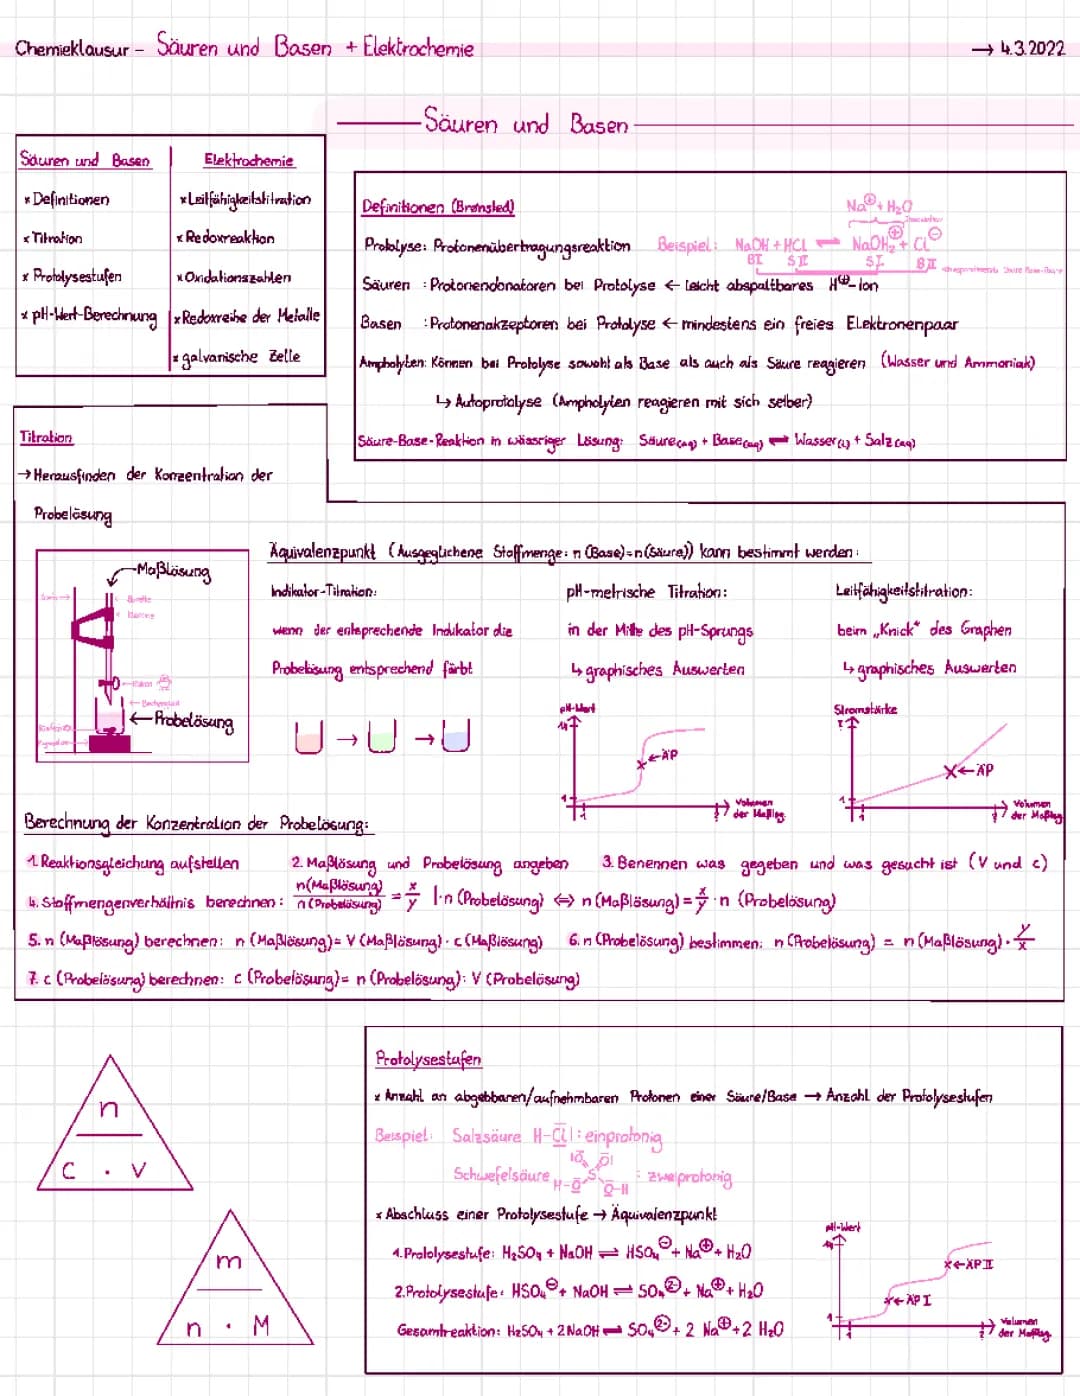 Chemieklausur - Säuren und Basen + Elektrochemie → 4.3.2022
Säuren und Basen
Säuren und Basen
x Definitionen
x Titration
x Protolysestufen
x pH-Wert-Berechnung
Elektrochemie
x Leitfähigkeitstitration
x Redoxreaktion
x Oxidationszahlen
x Redoxreihe der Metalle
x galvanische Zelle
Definitionen (Brønsted)
Na⊕ + H₂O
Protolyse: Protonenübertragungsreaktion Beispiel: NaOH + HCl ⇌ NaOH₂⊕ + Cl⊖
BI SII SI BII
Säuren : Protonendonatoren bei Protolyse ← leicht abspaltbares H⊕-Ion
Basen : Protonenakzeptoren bei Protolyse ← mindestens ein freies Elektronenpaar
Ampholyten: Können bei Protolyse sowohl als Base als auch als Säure reagieren (Wasser und Ammoniak)
↳ Autoprotolyse (Ampholyten reagieren mit sich selber)
Säure-Base-Reaktion in wässriger Lösung: Säure(aq) + Base(aq) ⇌ Wasser(l) + Salz(aq)
Titration
→ Herausfinden der Konzentration der
Probelösung
Maßlösung
Bürette
Klammer
Becherglas
← Probelösung
Äquivalenzpunkt (Ausgeglichene Stoffmenge: n(Base)=n(Säure)) kann bestimmt werden:
Indikator-Titration:
wenn der entsprechende Indikator die
Probelösung entsprechend färbt
→ →
pH-metrische Titration:
in der Mitte des pH-Sprungs
↳ graphisches Auswerten
pH-Wert
14
← ÄP
1
1
Volumen
der Maßlsg.
Leitfähigkeitstitration:
beim „Knick“ des Graphen
↳ graphisches Auswerten
Stromstärke
I
← ÄP
1
1
Volumen
der Maßlsg
Berechnung der Konzentration der Probelösung:
1. Reaktionsgleichung aufstellen 2. Maßlösung und Probelösung angeben 3. Benennen was gegeben und was gesucht ist (V und c)
4. Stoffmengenverhältnis berechnen: n(Maßlösung)/n(Probelösung) = x/y |·n (Probelösung) ⇔ n (Maßlösung) = x/y · n (Probelösung)
5. n (Maßlösung) berechnen: n (Maßlösung) = V (Maßlösung) · c (Maßlösung) 6. n (Probelösung) bestimmen: n (Probelösung) = n (Maßlösung) · y/x
7. c (Probelösung) berechnen: c (Probelösung) = n (Probelösung) : V (Probelösung)
n
c · V
m
n · M
Protolysestufen
x Anzahl an abgebbaren/aufnehmbaren Protonen einer Säure/Base → Anzahl der Protolysestufen
Beispiel: Salzsäure H-Cl| : einprotonig
Schwefelsäure H-O S O-H : zweiprotonig
x Abschluss einer Protolysestufe → Äquivalenzpunkt
1. Protolysestufe: H₂SO₄ + NaOH ⇌ HSO₄⊖ + Na⊕ + H₂O
2. Protolysestufe: HSO₄⊖ + NaOH ⇌ SO₄²⊖ + Na⊕ + H₂O
Gesamtreaktion: H₂SO₄ + 2 NaOH ⇌ SO₄²⊖ + 2 Na⊕ + 2 H₂O
pH-Wert
14
← ÄP II
← ÄP I
1
1
Volumen
der Maßlsg.